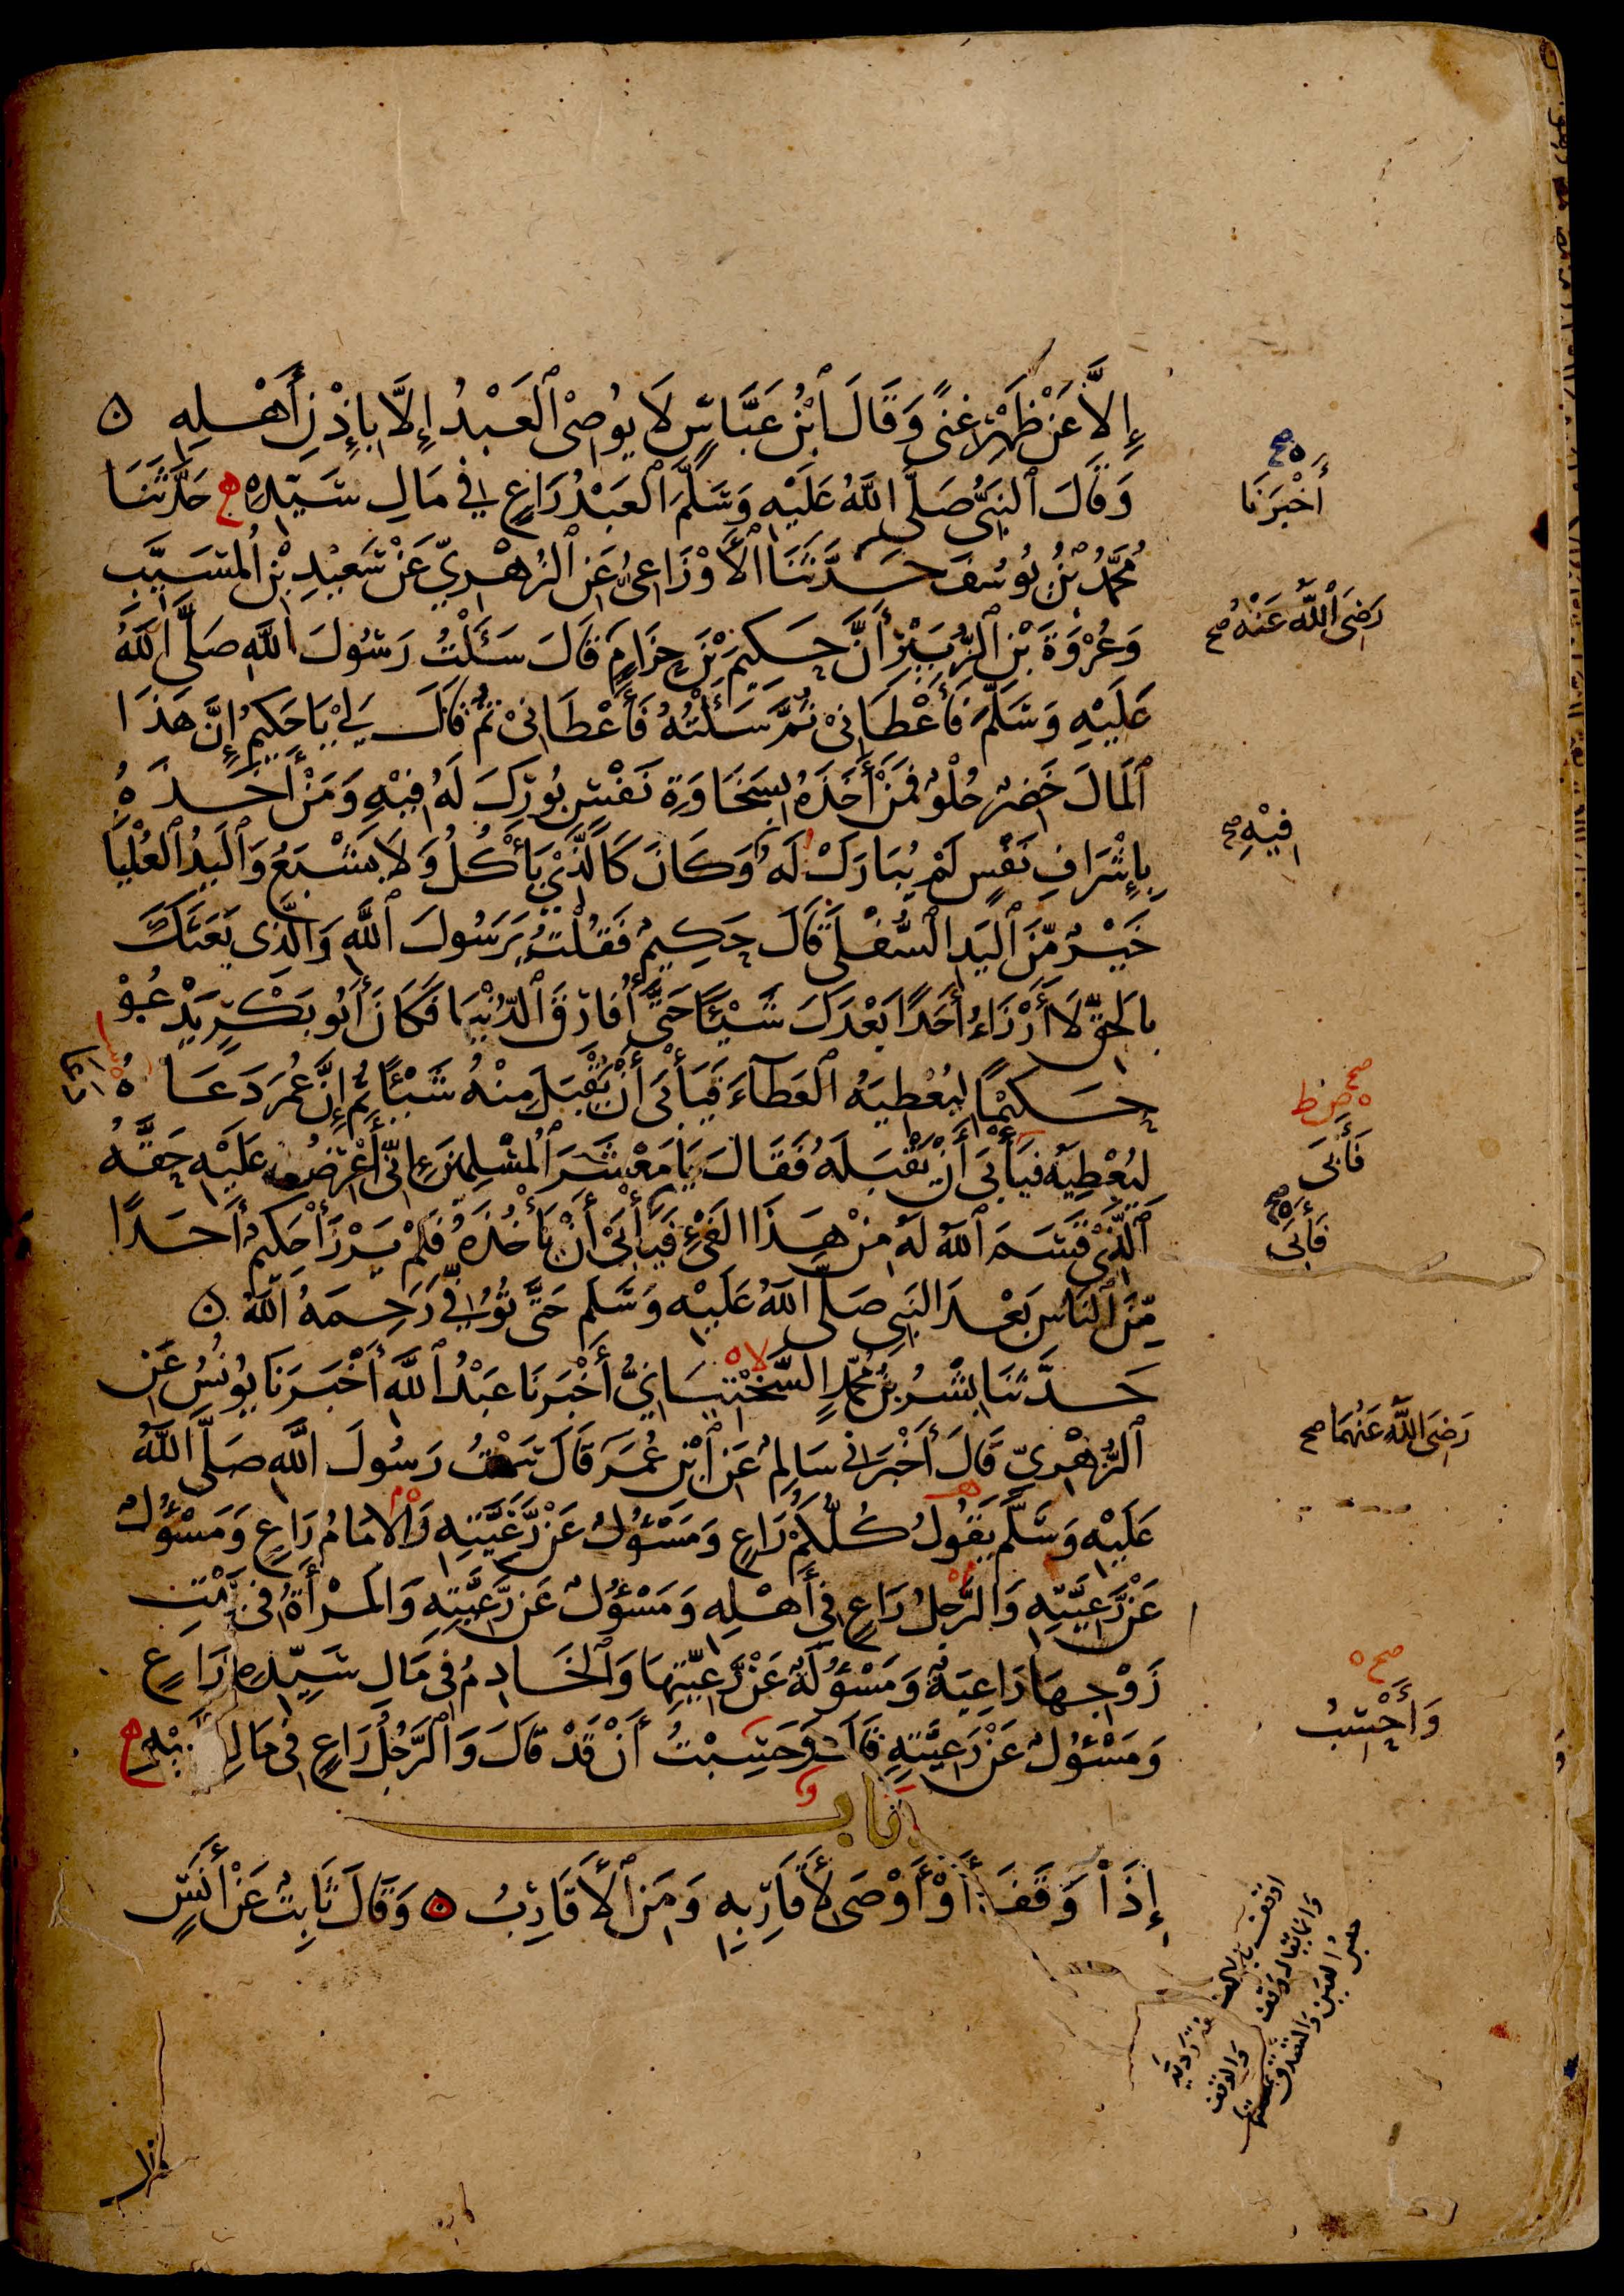 إِلَّا عَنْ ظَهْرِ غِنًى وَقَالَ ابْنُ عَبَّاسٍ لَا يُوصِي الْعَبْدُ إِلَّا بِإِذْنِ أَهْلِهِ ن
وَقَالَ النَّبِيُّ صَلَّى اللَّهُ عَلَيْهِ وَسَلَّمَ الْعَبْدُ رَاعٍ فِي مَالِ سَيِّدِهِ ه حَدَّثَنَا
أَخْبَرَنَا
مُحَمَّدُ بْنُ يُوسُفَ حَدَّثَنَا الْأَوْزَاعِيُّ عَنِ الزُّهْرِيِّ عَنْ سَعِيدِ بْنِ الْمُسَيَّبِ
رَضِيَ اللَّهُ عَنْهُ صح
وَعُرْوَةَ بْنِ الزُّبَيْرِ أَنَّ حَكِيمَ بْنَ حِزَامٍ قَالَ سَئَلْتُ رَسُولَ اللَّهِ صَلَّى اللَّهُ
عَلَيْهِ وَسَلَّمَ فَأَعْطَانِي ثُمَّ سَئَلْتُهُ فَأَعْطَانِي ثُمَّ قَالَ لِي يَا حَكِيمُ إِنَّ هَذَا
الْمَالَ خَضِرٌ حُلْوٌ فَمَنْ أَخَذَهُ بِسَخَاوَةِ نَفْسٍ بُورِكَ لَهُ فِيهِ وَمَنْ أَخَذَهُ
فِيْهِ صح
بِإِشْرَافِ نَفْسٍ لَمْ يُبَارَكْ لَهُ وَكَانَ كَالَّذِي يَأْكُلُ وَلَا يَشْبَعُ وَالْيَدُ الْعُلْيَا
خَيْرٌ مِّنَ الْيَدِ السُّفْلَى قَالَ حَكِيمٌ فَقُلْتُ يَرَسُولَ اللَّهِ وَالَّذِي بَعَثَكَ
بِالْحَقِّ لَا أَرْزَاءُ أَحَدًا بَعْدَكَ شَيْئًا حَتَّى أُفَارِقَ الدُّنْيَا فَكَانَ أَبُو بَكْرٍ يَدْعُوْ
حَكِيْمًا لِيُعْطِيَهُ الْعَطَآءَ فَيَأْبَى أَنْ يَقْبَلَ مِنْهُ شَيْئًا ثُمَّ إِنَّ عُمَرَ دَعَاهُ
صح
فَأَبَى
لِيُعْطِيَهُ فَيَأْبَى أَنْ يَقْبَلَهُ فَقَالَ يَا مَعْشَرَ الْمُسْلِمِينَ إِنِّي أَعْرِضُ عَلَيْهِ حَقَّهُ
فَأَبَى
الَّذِي قَسَمَ اللَّهُ لَهُ مِنْ هَذَا الْفَيْءِ فَيَأْبَى أَنْ يَأْخُذَهُ فَلَمْ يَرْزَأْ حَكِيمٌ أَحَدًا
مِّنَ النَّاسِ بَعْدَ النَّبِيِّ صَلَّى اللَّهُ عَلَيْهِ وَسَلَّمَ حَتَّى تُوُفِّيَ رَحِمَهُ اللَّهُ ن
حَدَّثَنَا بِشْرُ بْنُ مُحَمَّدٍ السَّخْتِيَانِيُّ أَخْبَرَنَا عَبْدُ اللَّهِ أَخْبَرَنَا يُونُسُ عَنِ
الزُّهْرِيِّ قَالَ أَخْبَرَنِي سَالِمٌ عَنِ ابْنِ عُمَرَ قَالَ سَمِعْتُ رَسُولَ اللَّهِ صَلَّى اللَّهُ
رَضِيَ اللَّهُ عَنْهُمَا صح
عَلَيْهِ وَسَلَّمَ يَقُولُ كُلُّكُمْ رَاعٍ وَمَسْئُولٌ عَنْ رَّعِيَّتِهِ وَالْإِمَامُ رَاعٍ وَمَسْئُولٌ
عَنْ رَّعِيَّتِهِ وَالرَّجُلُ رَاعٍ فِي أَهْلِهِ وَمَسْئُولٌ عَنْ رَّعِيَّتِهِ وَالْمَرْأَةُ فِي بَيْتِ
زَوْجِهَا رَاعِيَةٌ وَمَسْئُولَةٌ عَنْ رَّعِيَّتِهَا وَالْخَادِمُ فِي مَالِ سَيِّدِهِ رَاعٍ
صح
وَأَحْسِبُ
وَمَسْئُولٌ عَنْ رَعِيَّتِهِ قَالَ وَحَسِبْتُ أَنْ قَدْ قَالَ وَالرَّجُلُ رَاعٍ فِي مَالِ أَبِيهِ ه
بَاب
إِذَا وَقَفَ أَوْ أَوْصَى لِأَقَارِبِهِ وَمَنِ الْأَقَارِبُ ه وَقَالَ ثَابِتٌ عَنْ أَنَسٍ